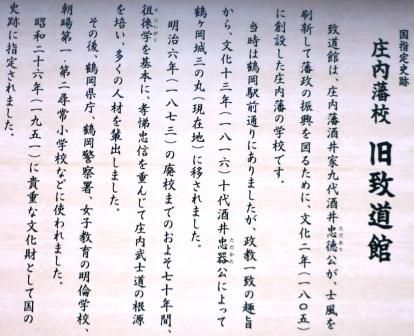 国指定史跡
庄内藩校 旧致道館
致道館は、庄内藩酒井家九代酒井忠徳公が、士風を
刷新して藩政の振興を図るために、文化二年(一八〇五)
に創設した庄内藩の学校です。
当時は鶴岡駅前通りにありましたが、政教一致の趣旨
から、文化十三年(一八一六)十代酒井忠器公によって
鶴ヶ岡城三の丸(現在地)に移されました。
明治六年(一八七三)の廃校までのおよそ七十年間、
徂徠学を基本に、孝悌忠信を重んじて庄内武士道の根源
を培い、多くの人材を輩出しました。
その後、鶴岡県庁、鶴岡警察署、女子教育の明倫学校、
朝暘第一・第二尋常小学校などに使われました。
昭和二十六年(一九五一)に貴重な文化財として国の
史跡に指定されました。